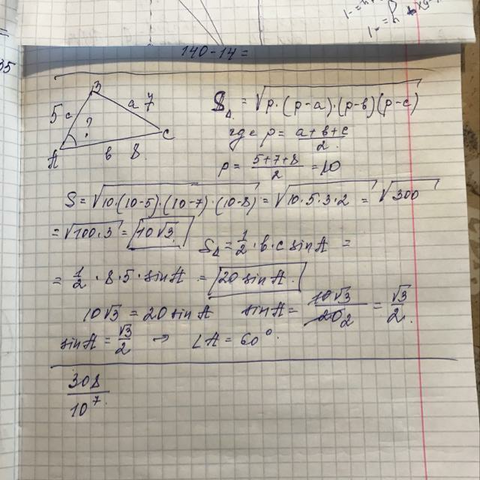 140-14=
B
5 c a 7
?
A b 8 C
S△ = √p·(p-a)·(p-b)(p-c)
где p = (a+b+c)/2
p = (5+7+8)/2 = 10
S = √10·(10-5)·(10-7)·(10-8) = √10·5·3·2 = √300
= √100·3 = 10√3. S△ = 1/2 · b · c sin A =
= 1/2 · 8 · 5 · sin A = 20 sin A.
10√3 = 20 sin A sin A = 10√3/20 2 = √3/2.
sin A = √3/2 → ∠A = 60°.
308/10⁷